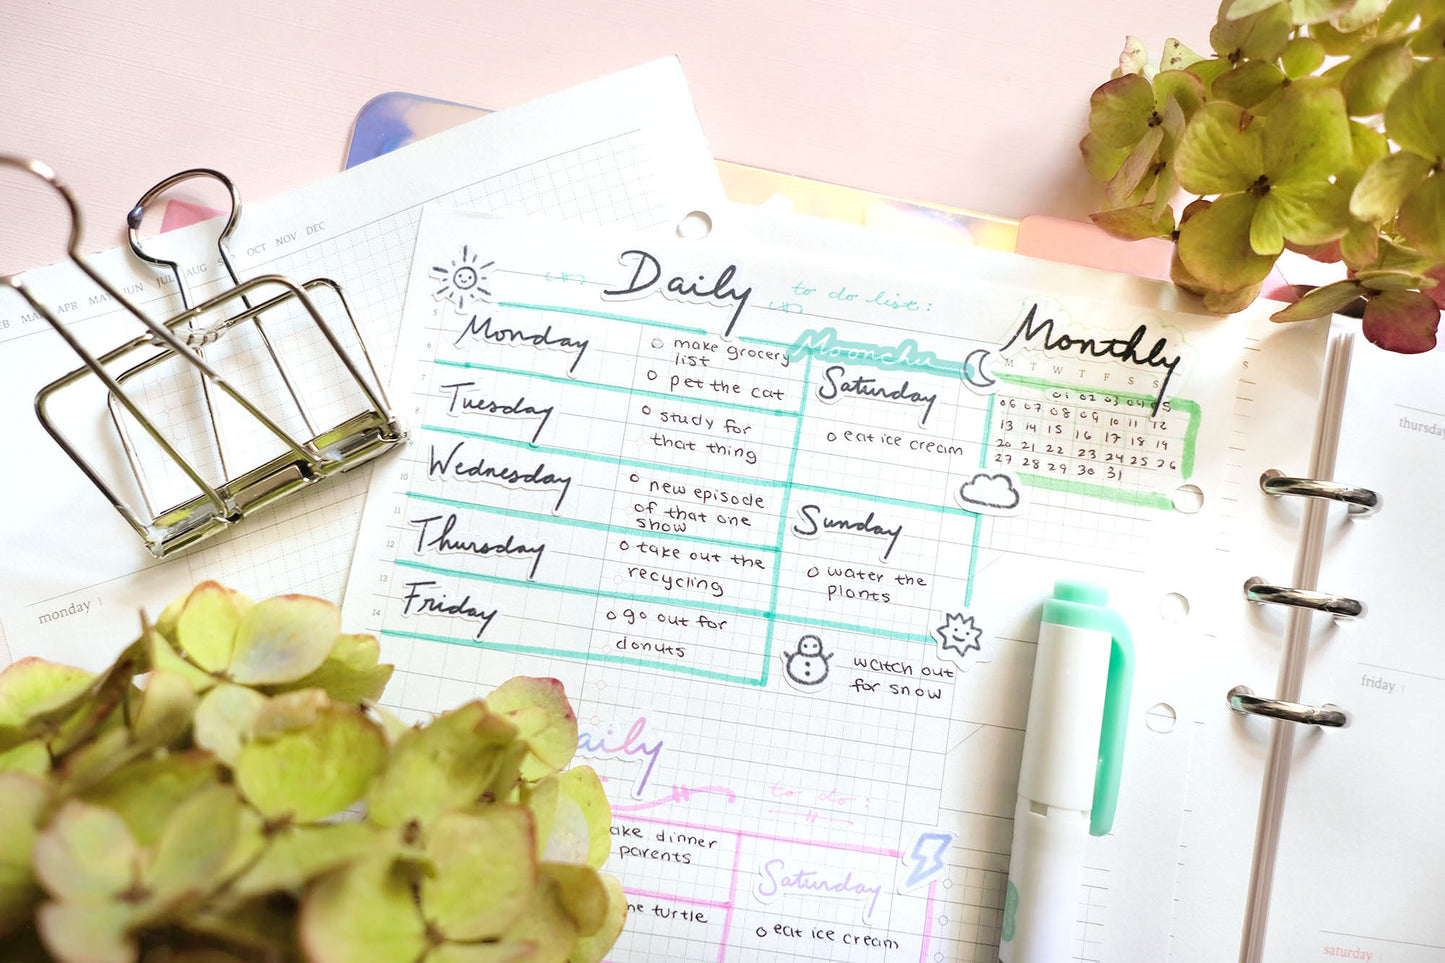 MAY
JUN
JUL
AUG
OCT NOV DEC
APR
monday
Daily
to do list:
Monday
make grocery
list
pet the cat
Tuesday
study for
that thing
Wednesday
new episode
of that one
show
Thursday
take out the
recycling
Friday
go out for
donuts
Saturday
eat ice cream
Sunday
water the
plants
watch out
for snow
Monthly
M T W T F S S
01 02 03 04 05
06 07 08 09 10 11 12
13 14 15 16 17 18 19
20 21 22 23 24 25 26
27 28 29 30 31
6
7
8
10
11
12
13
14
aily
to do:
ake dinner
parents
ne turtle
Saturday
eat ice cream
thursday
friday
saturday